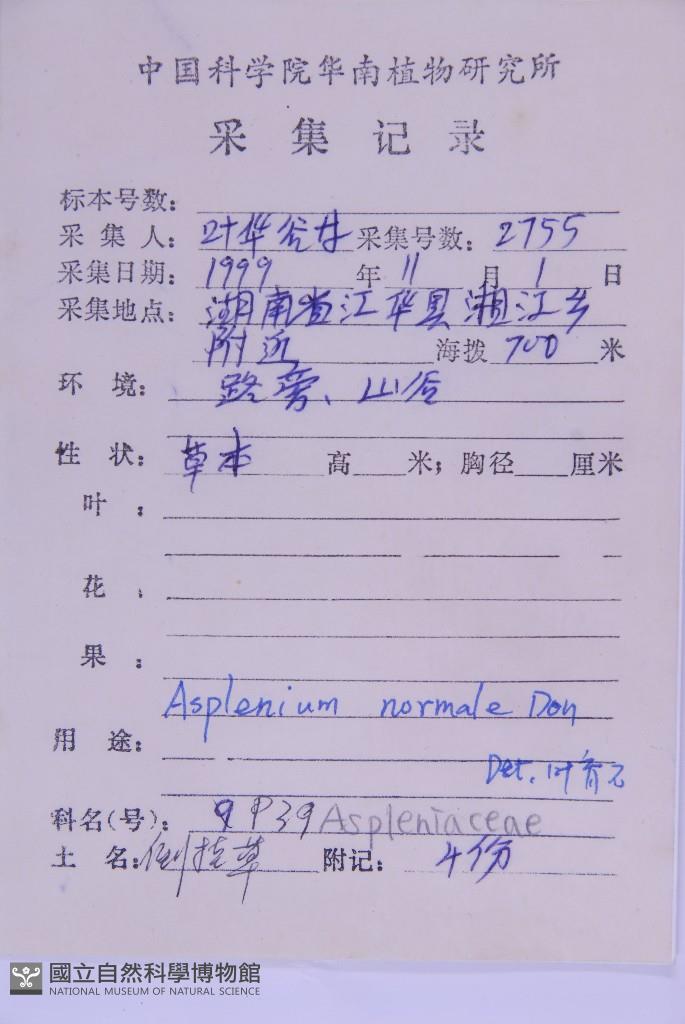 中国科学院华南植物研究所
采集记录
标本号数:
采集人: 叶华谷等 采集号数: 2755
采集日期: 1999 年 11 月 1 日
采集地点: 湖南省江华县湘江乡
附近 海拨 700 米
环境: 路旁、山谷
性状: 草本 高 米; 胸径 厘米
叶:
花:
果:
Asplenium normale Don
用途:
Det. 叶育石
科名(号): P39 Aspleniaceae
土名: 倒挂草 附记: 4份
國立自然科學博物館
NATIONAL MUSEUM OF NATURAL SCIENCE